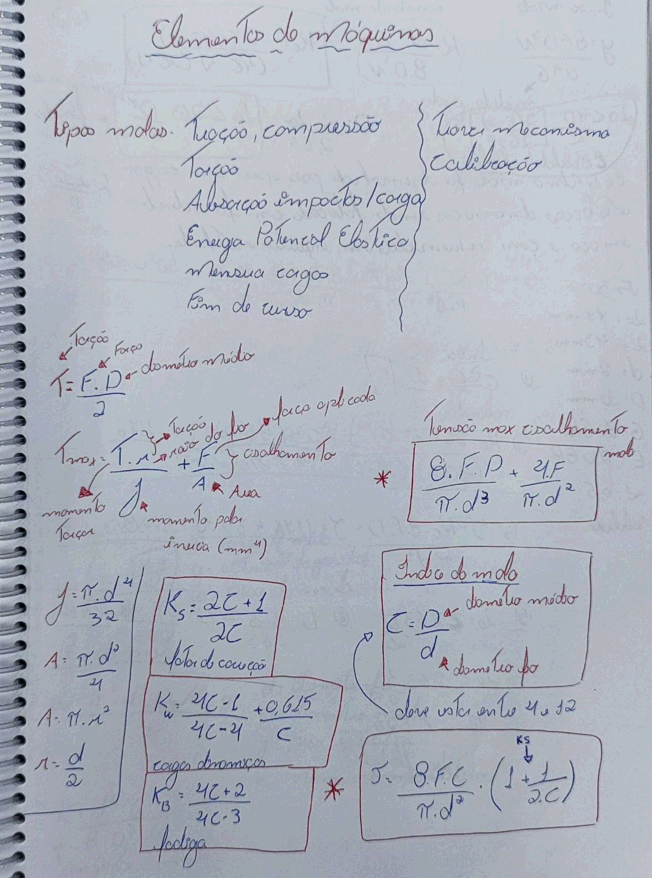 Elementos de Máquinas
Tipos molas. Tração, compressão
Torção
Absorção impactos/carga
Energia Potencial Elástica
Mensura cargas
Fim de curso
Trava mecanismo
calibração
Torção
Força
T = F.D / 2
diâmetro médio
Tmax = T.r / J + F / A
Torção
raio do fio
força aplicada
cisalhamento
Área
momento Torçor
momento polar
inercia (mm⁴)
Tensão max cisalhamento
mola
* 8.F.D / π.d³ + 4.F / π.d²
J = π.d⁴ / 32
A = π.d² / 4
A = π.r²
r = d / 2
Ks = 2C + 1 / 2C
fator de correção
Kw = 4C - 1 / 4C - 4 + 0,615 / C
cargas dinamicas
KB = 4C + 2 / 4C - 3
fadiga
Indice de mola
C = D / d
diametro médio
diametro fio
deve estar entre 4 e 12
KS
* J = 8.F.C / π.d² . (1 + 1 / 2.C)